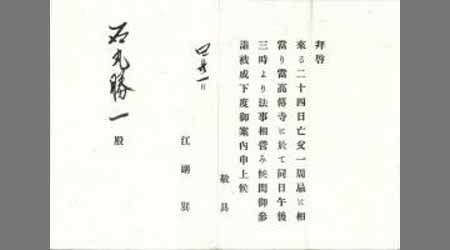 拜啓
來る二十四日亡父一周忌に相
當り當高傳寺に於て同日午後
三時より法事相營み候間御參
詣被成下度御案内申上候
敬具
日
江副巽
石丸勝一殿